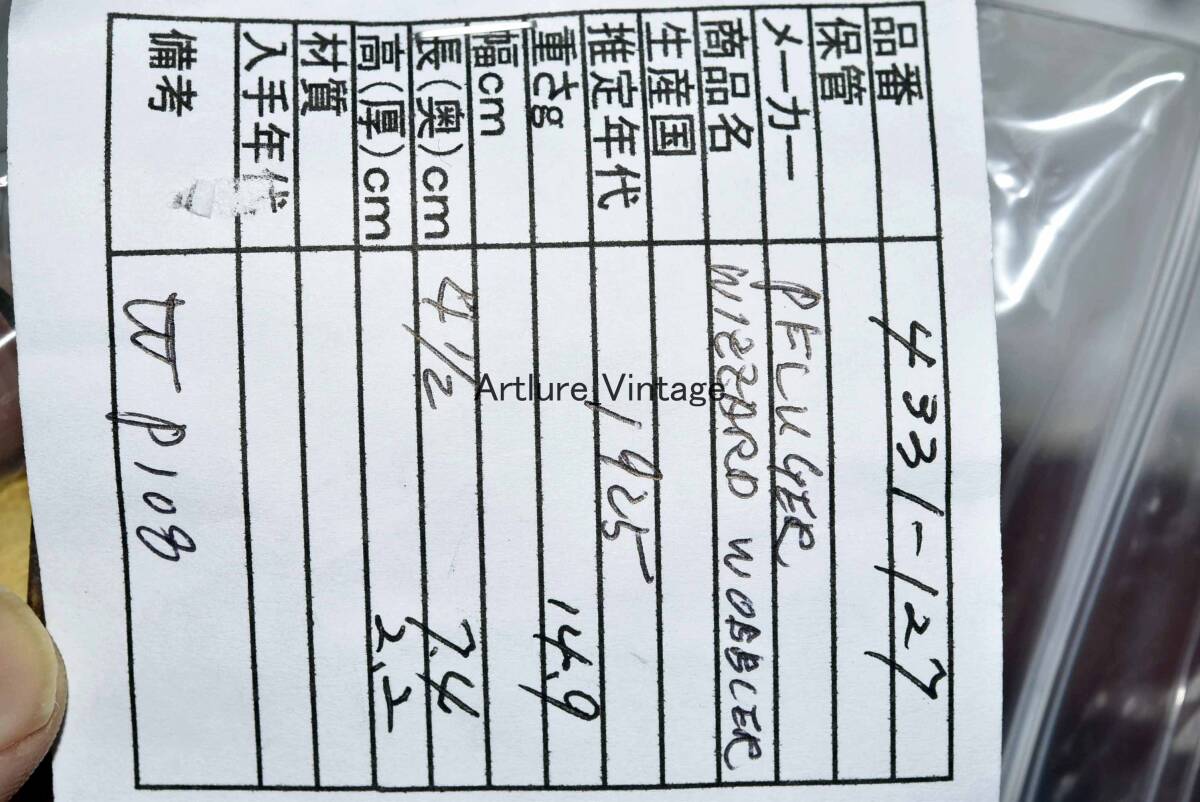 品番 4331-127
保管
メーカー PFLUGER
商品名 WIZZARD WOBBLER
生産国
推定年代 1925
重さg 14.9
幅cm
長(奥)cm 4 1/2 7.4
高(厚)cm 2.2
材質
入手年代
備考 W P108
Artlure_Vintage